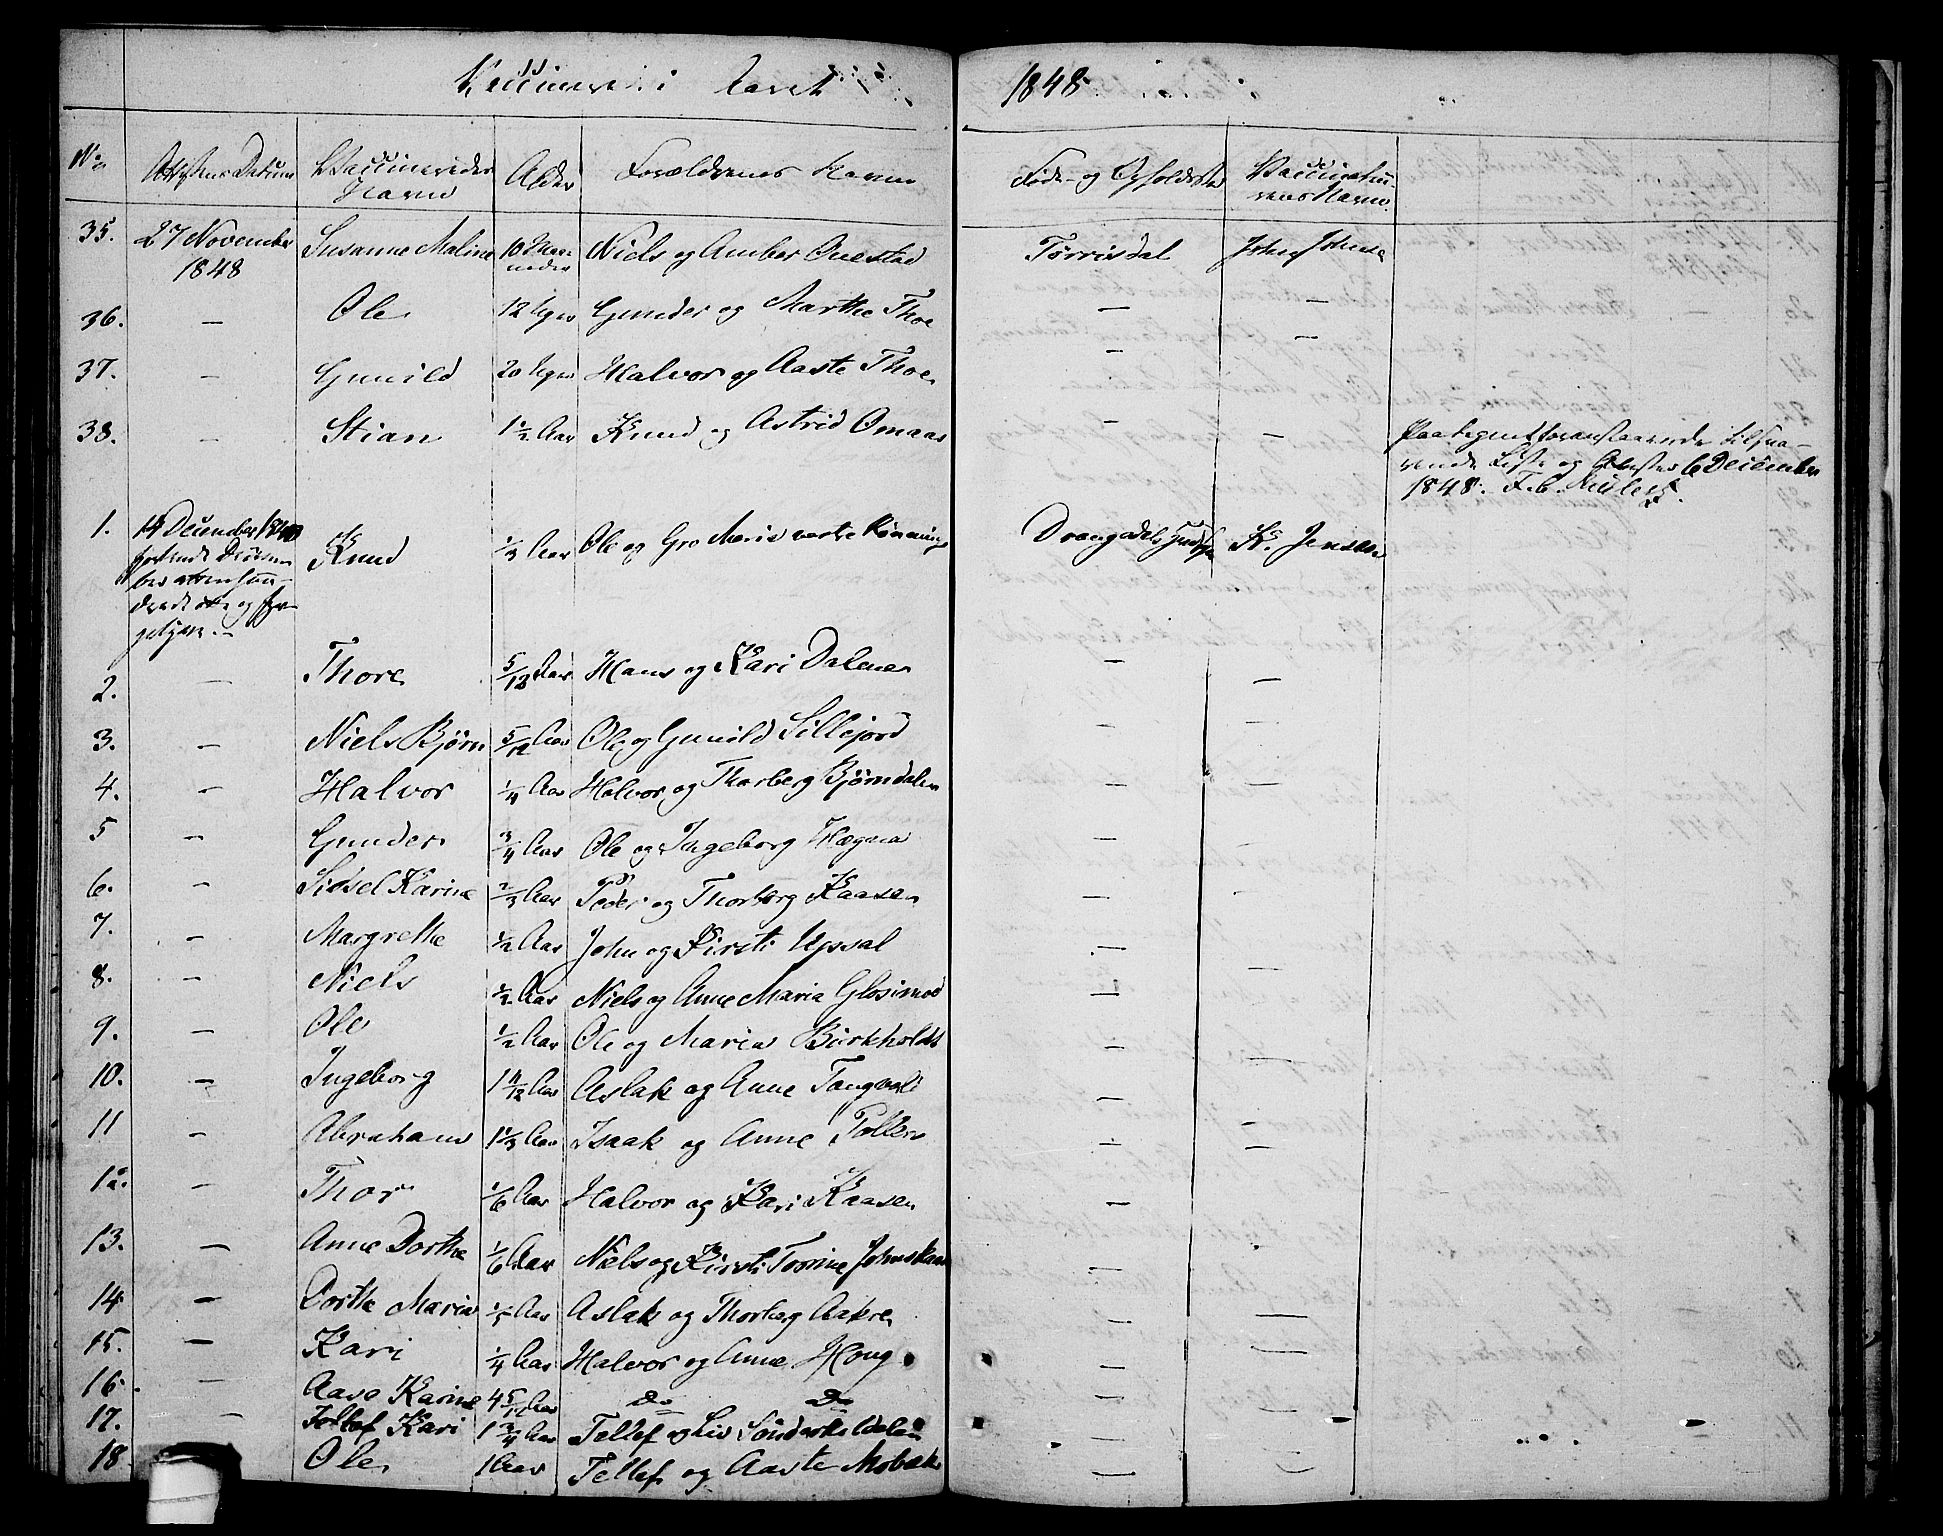 Vaccinerede i Aaret 1848
No Attestens Datum Vaccineredes Navn Alder Forældrenes Navne Føde- og Opholdsted Vaccinateurens Navn
35. 27 November 1848 Susanne Maline 10 Maaneder Niels og Amber Tørrisdal John Johnsen
36. — Ole 12 Uger Gunder og Marthe Thoe — —
37. — Gunild 20 Uger Halvor og Aaste Thoe — —
38. — Stian 1½ Aar Knud og Astrid Omaas — —
Liste og 6 December
1848.
1. 14 December 1848 Knud ½ Aar Ole og Gro Marie Rønninge Drangedals K. Jensen
2. — Thore 5/12 Aar Hans og Kari Dalene — —
3. — Niels Bjørn 5/12 Aar Ole og Gunild Sillejord — —
4. — Halvor ¼ Aar Halvor og Thorberg Bjørndalen — —
5 — Gunder ¾ Aar Ole og Ingeborg Hægna — —
6. — Sidsel Karine 2/3 Aar Peder og Thorborg Kaasen — —
7. — Margrethe ½ Aar John og Kirsti Upsal — —
8. — Niels ½ Aar Niels og Anne Maria Glosimod — —
9. — Ole ½ Aar Ole og Maria Birkholdt — —
10. — Ingeborg 1 11/12 Aar Aslak og Anne Tangvald — —
11 — Abraham 1 1/3 Aar Isaak og Anne Tollen — —
12. — Thor 1/6 Aar Halvor og Kari Kaasen — —
13. — Anne Dorthe 1/6 Aar Niels og Kirsti Torine — —
14 — Dorthe Maria Aar Aslak og Thorberg Aakre — —
15. — Kari ¼ Aar Halvor og Anne Houg — —
16. — Aase Karine 4 5/12 Aar Do Do — —
17. — Kari 1 ¾ Aar Tellef og Liv — —
18 Ole 1 Aar Tellef og Aaste Mobæk — —